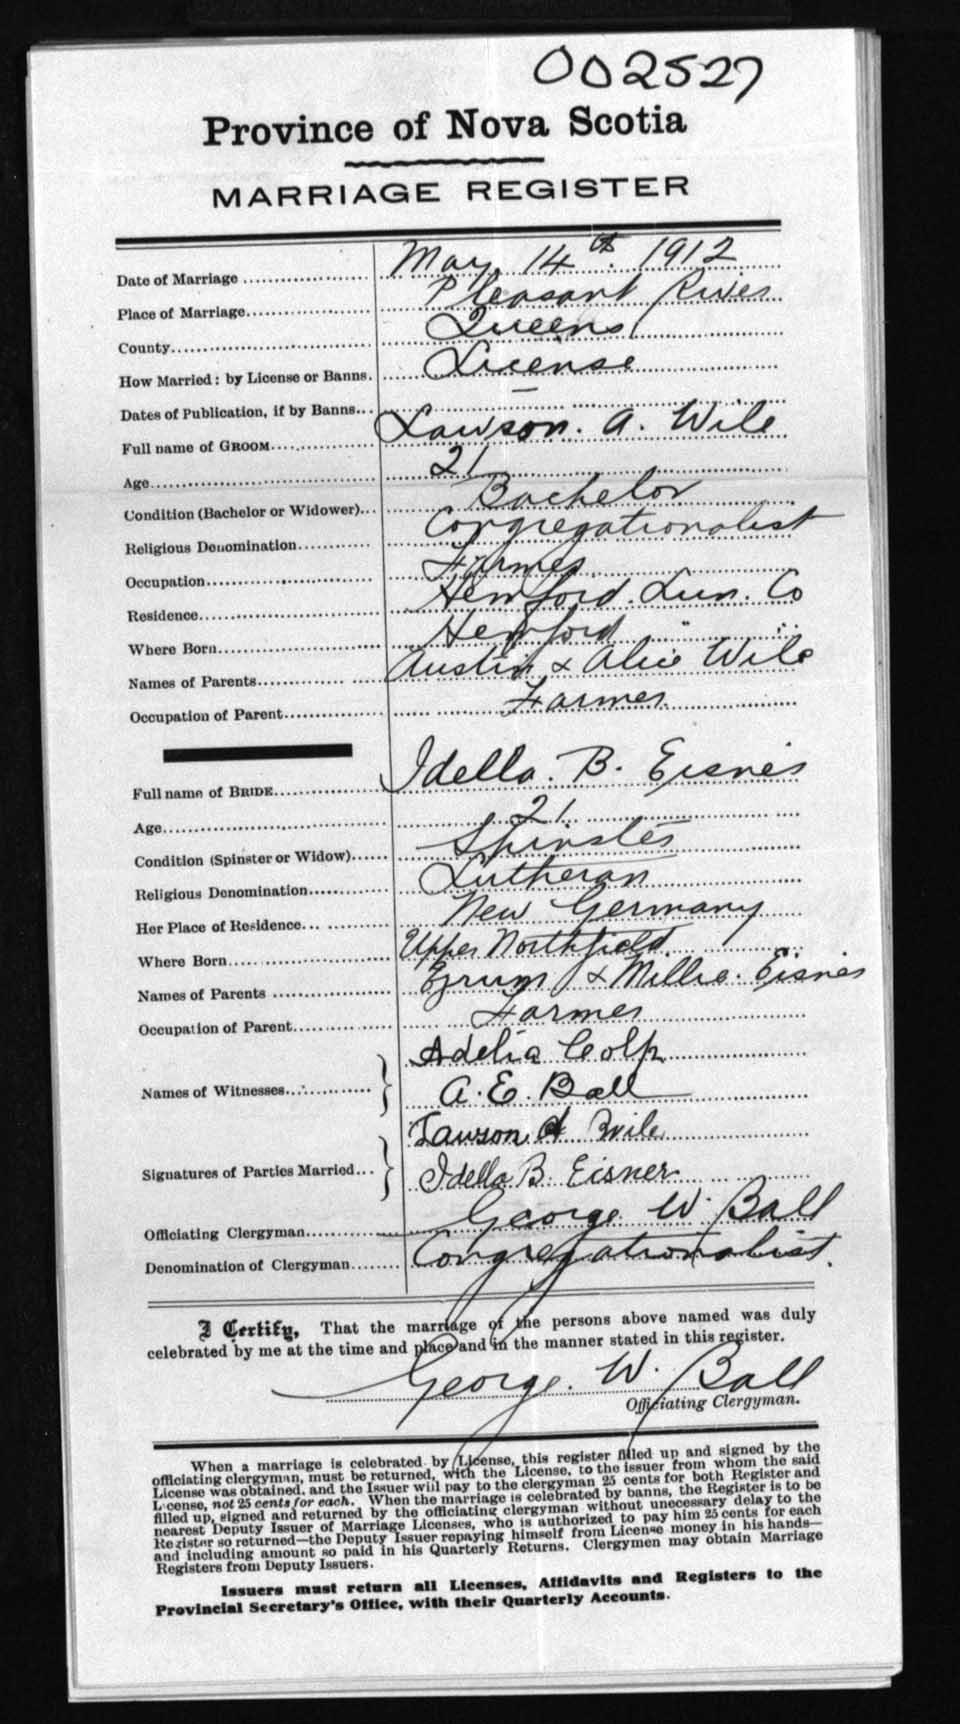 002527
Province of Nova Scotia
MARRIAGE REGISTER
Date of Marriage May 14th 1912
Place of Marriage Pleasant River
County Queens
How Married: by License or Banns. License
Dates of Publication, if by Banns... —
Full name of GROOM Lawson. A. Wile
Age 21
Condition (Bachelor or Widower)... Bachelor
Religious Denomination Congregationalist
Occupation Farmer
Residence Hemford. Lun. Co
Where Born Hemford " "
Names of Parents Austin & Alice Wile
Occupation of Parent Farmer
Full name of BRIDE Idella. B. Eisner
Age 21
Condition (Spinster or Widow) Spinster
Religious Denomination Lutheran
Her Place of Residence New Germany
Where Born Upper Northfield
Names of Parents & Millie. Eisner
Occupation of Parent Farmer
Names of Witnesses Adelia Colp
A. E. Ball
Signatures of Parties Married... Lawson A Wile
Idella B. Eisner
Officiating Clergyman George W. Ball
Denomination of Clergyman Congregationalist.
I Certify, That the marriage of the persons above named was duly
celebrated by me at the time and place and in the manner stated in this register.
George. W. Ball
Officiating Clergyman.
When a marriage is celebrated by License, this register filled up and signed by the
officiating clergyman, must be returned, with the License, to the issuer from whom the said
License was obtained, and the Issuer will pay to the clergyman 25 cents for both Register and
License, not 25 cents for each. When the marriage is celebrated by banns, the Register is to be
filled up, signed and returned by the officiating clergyman without unnecessary delay to the
nearest Deputy Issuer of Marriage Licenses, who is authorized to pay him 25 cents for each
Register so returned—the Deputy Issuer repaying himself from License money in his hands—
and including amount so paid in his Quarterly Returns. Clergymen may obtain Marriage
Registers from Deputy Issuers.
Issuers must return all Licenses, Affidavits and Registers to the
Provincial Secretary's Office, with their Quarterly Accounts.